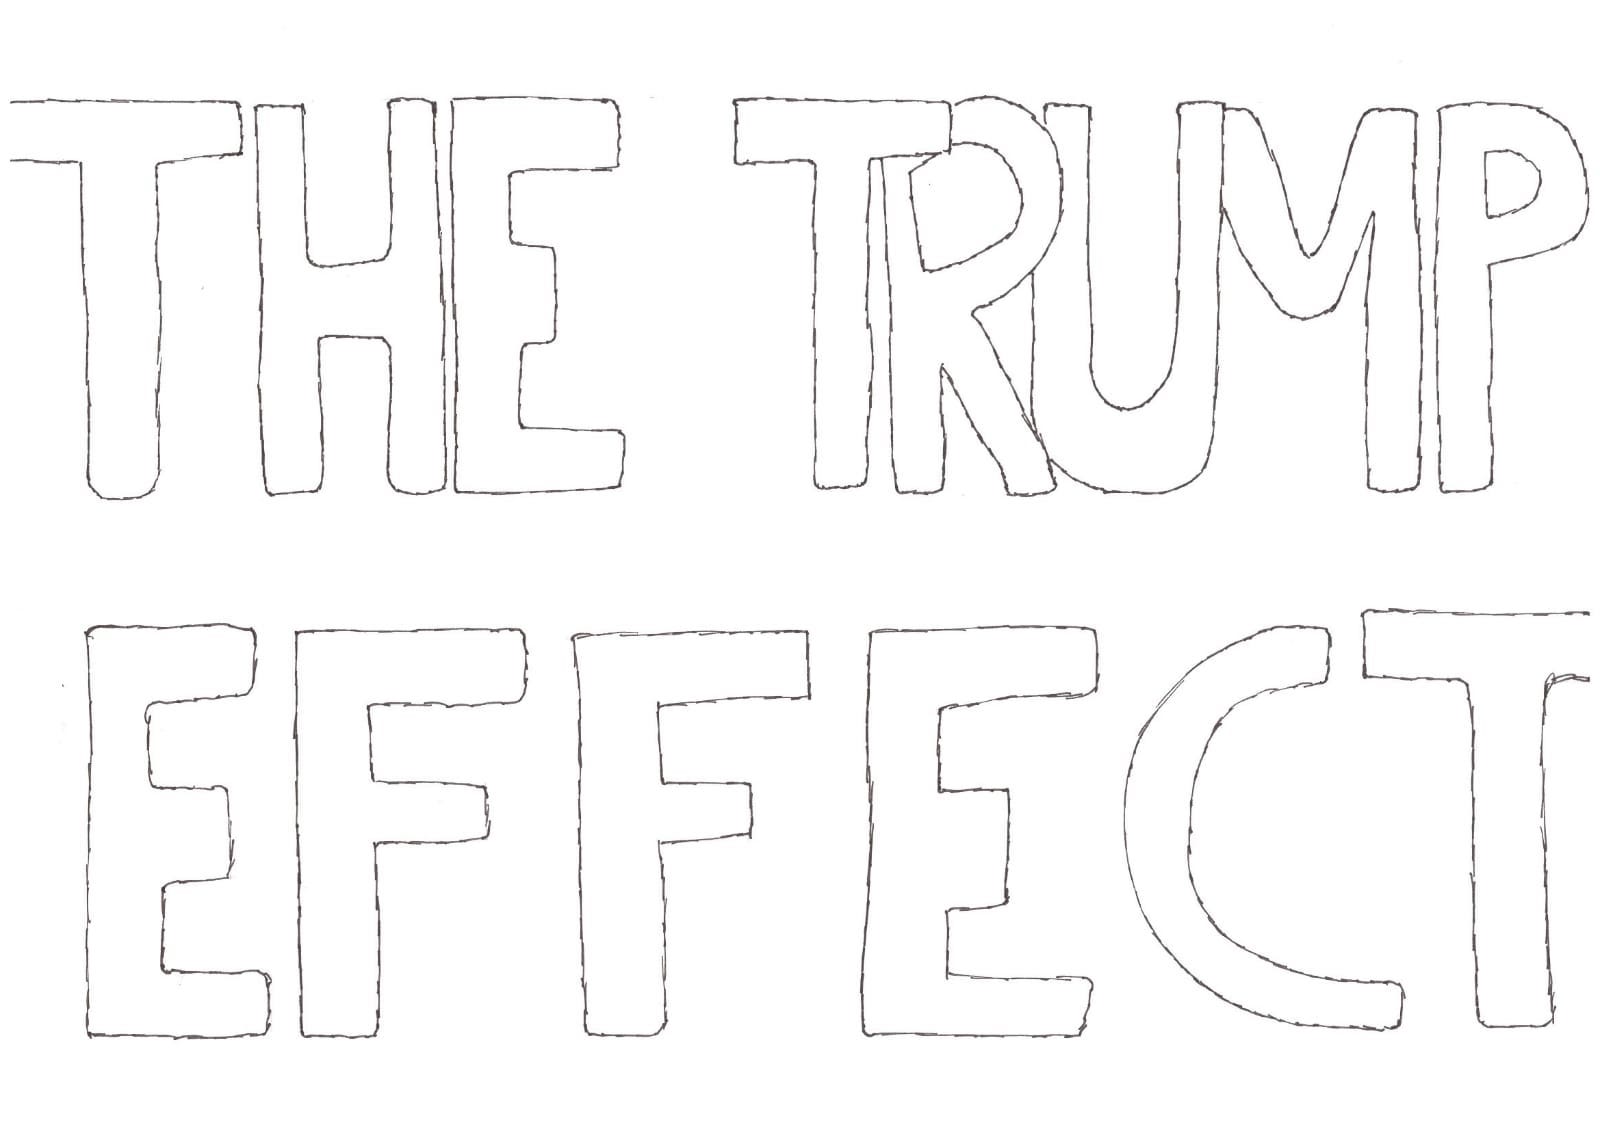 THE TRUMP
EFFECT